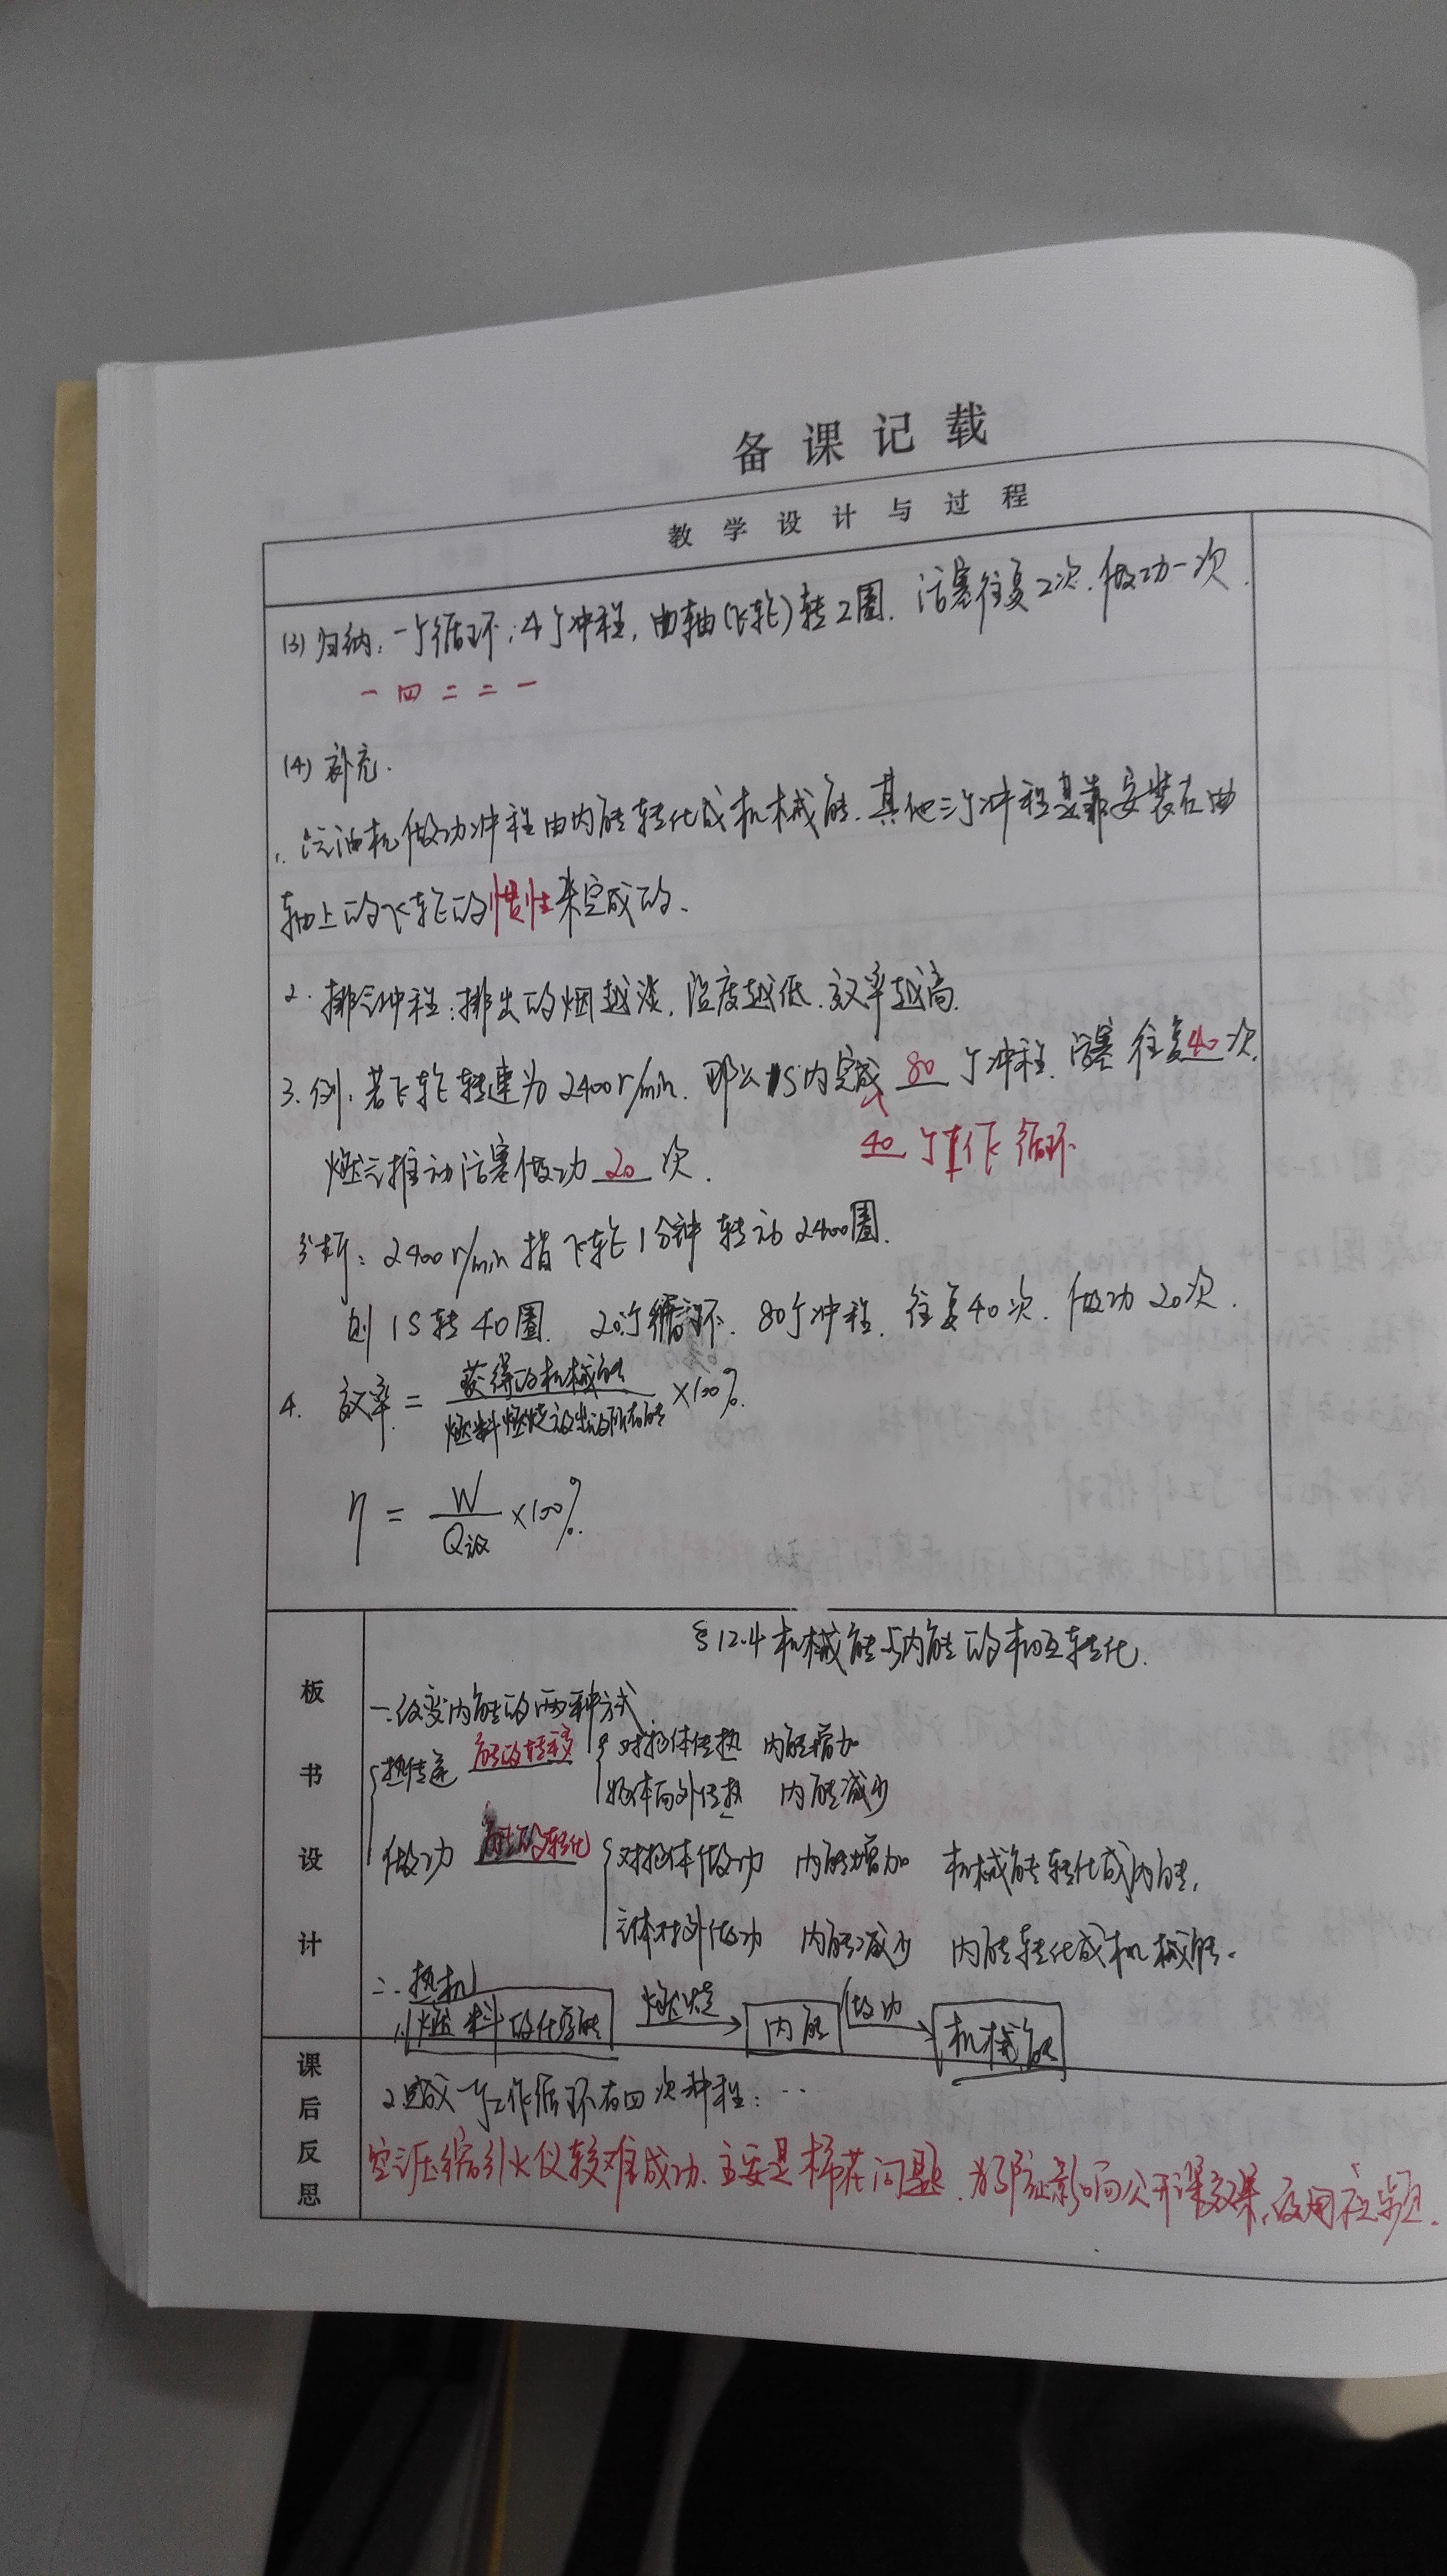 备课记载
教学设计与过程
(3) 归纳: 一个循环; 4个冲程, 曲轴(飞轮)转2圈. 活塞往复2次. 做功一次.
一 四 二 二 一
(4) 补充.
1. 汽油机做功冲程由内能转化成机械能. 其他三个冲程是靠安装在曲
轴上的飞轮的惯性来完成的.
2. 排气冲程: 排出的烟越淡, 温度越低. 效率越高.
3. 例. 若飞轮转速为2400r/min. 那么1S内完成 80 个冲程. 活塞往复40次.
40 个工作循环
燃气推动活塞做功 20 次.
分析: 2400r/min指飞轮1分钟转动2400圈.
则1S转40圈. 20个循环. 80个冲程. 往复40次. 做功20次.
4. 效率 = 获得的机械能/燃料燃烧放出的所有能 ×100%.
η = W/Q放 ×100%.
板书设计
§12.4机械能与内能的相互转化.
一. 改变内能的两种方式
热传递 能的转移 对物体传热 内能增加
物体向外传热 内能减少
做功 能的转化 对物体做功 内能增加 机械能转化成内能.
气体对外做功 内能减少 内能转化成机械能.
二. 热机
1. 燃料的化学能 燃烧→ 内能 做功→ 机械能
课后反思
2. 一个工作循环有四次冲程: ...
空气压缩引火仪较难成功. 主要是棉花问题. 为防止影响公开课效果, 改用视频.